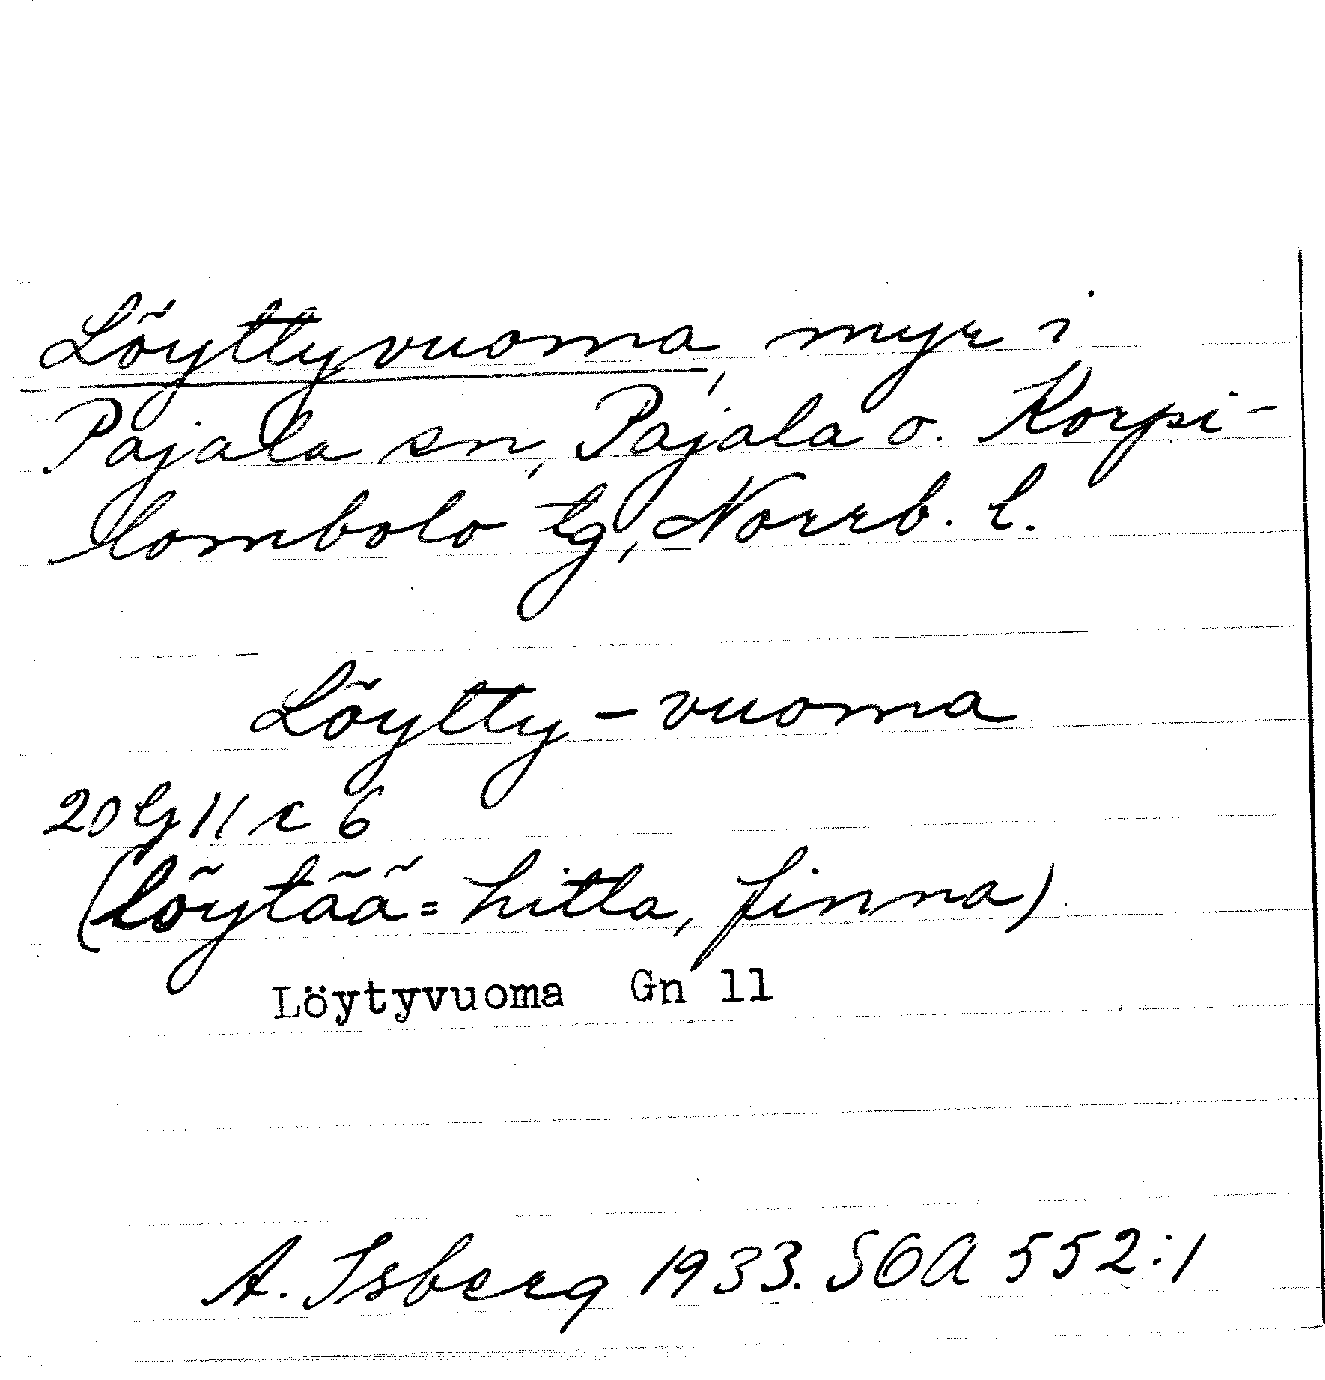 Löyttyvuoma, myr i
Pajala sn, Pajala o. Korpi-
lombolo tg, Norrb. l.
Löytty-vuoma
20 G 11 c 6
(löytää = hitta, finna)
Löytyvuoma Gn 11
A. Isberg 1933. SOA 552:1